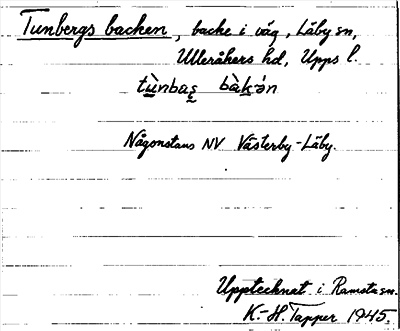 Tunbergs backen, backe i väg, Läby sn,
Ulleråkers hd, Upps l.
tùnbaş bàkǝn
Någonstans NV Västerby-Läby.
Upptecknat i Ramsta sn.
K.-H. Tapper 1945.